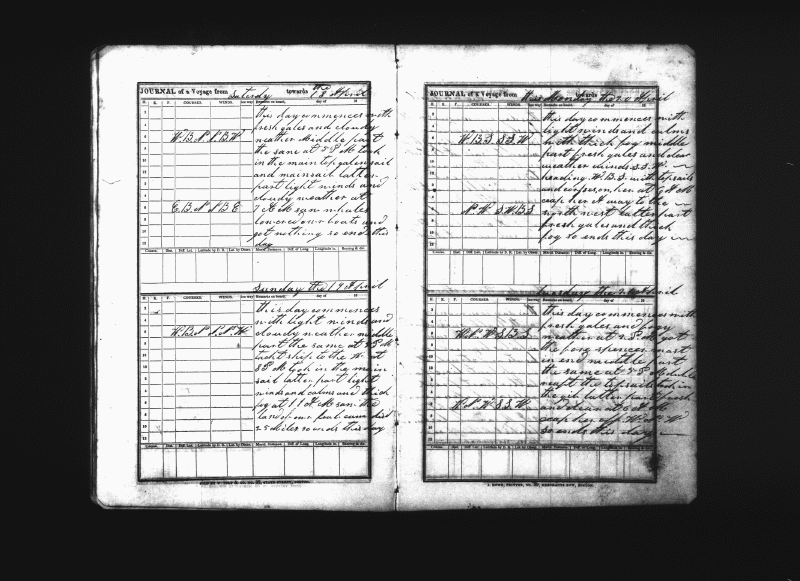 JOURNAL of a Voyage from Saturday towards the 18 April
H. K. F. COURSES. WINDS. Lee way Remarks on board, day of 18
this day commences with
fresh gales and cloudy
W.B.N N.B.W weather Middle part
the same at 5 P M took
in the main topgalen sail
and mainsail latter
part light winds and
cloudy weather at
E.B.N N.B.E 7 A M saw whales
lowered our boats and
got nothing so ends this
day
Course. Dist. Diff Lat. Latitude by D. R. Lat by Obser. Merid. Distance. Diff of Long. Longitude in. Bearing & dis.
Sunday the 19 April
H. K. F. COURSES. WINDS. Lee way Remarks on board, day of 18
this day commences
with light winds and
W.B.N N.N.W cloudy weather middle
part the same at
tackt ship to the W at
8 P M took in the main
sail latter part light
winds and calms and thick
fog at 11 A M saw the
land of our
25 Miles so ends this day
Course. Dist. Diff Lat. Latitude by D. R. Lat by Obser. Merid. Distance. Diff of Long. Longitude in. Bearing & dis.
JOURNAL of a Voyage from this Monday towards the 20 April
H. K. F. COURSES. WINDS. Lee way Remarks on board, day of 18
this day commences with
light winds and calms
W.B.S S.S.W with thick fog middle
part fresh gales and clear
weather winds S.S.W
heading W.B.S. with topsails
and corses on her at 7 A M
way to the
N.W S.W.B.S north west latter part
fresh gales and thick
fog so ends this day
Course. Dist. Diff Lat. Latitude by D. R. Lat by Obser. Merid. Distance. Diff of Long. Longitude in. Bearing & dis.
Tuesday the 21 April
H. K. F. COURSES. WINDS. Lee way Remarks on board, day of 18
this day commences with
fresh gales and foggy
W.N.W S.B.S weather at 2 P M got
the fore spencer mast
in end middle part
the same at 7 P M double
reeft the topsails took in
the gib latter part fresh
W.N.W S.S.W and clean at 6 A M
so ends this day
Course. Dist. Diff Lat. Latitude by D. R. Lat by Obser. Merid. Distance. Diff of Long. Longitude in. Bearing & dis.